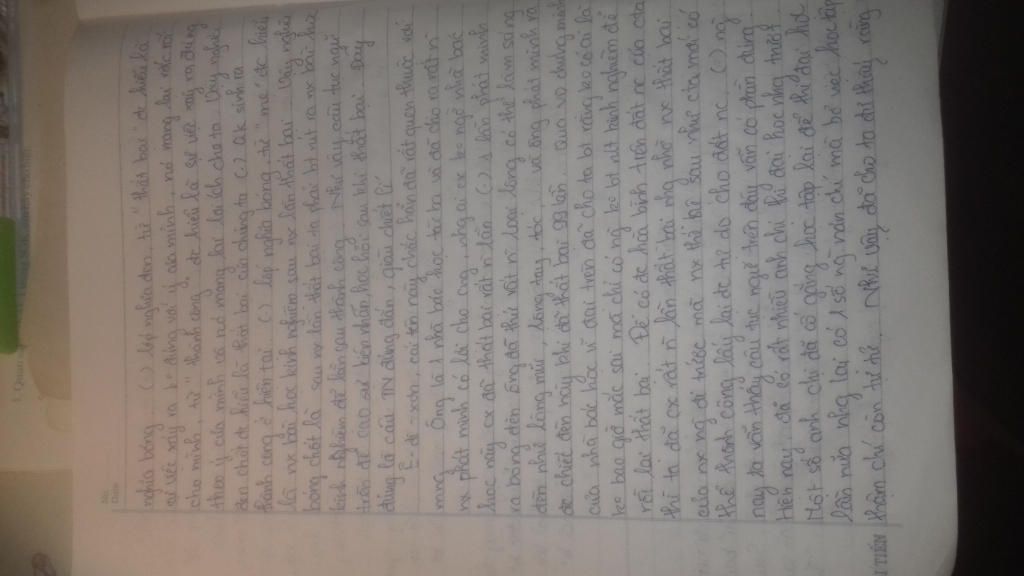 No.
Date
nghĩa bóng. (.) lớp nghĩa đen từ "thất bại" đc hiểu là
sự việc xảy ra k° đúng với ý của mình, nó mang lại
cho mình, từ "thành công" đc hiểu là sự việc xảy ra đúng
theo ý của mình và nó mang lại lợi ích cho ta. Suy nghĩa
đen chất đc hiểu là thất bại của chúng ta (.) sinh ra
thành công ở hiện tại. (.) lớp nghĩa bóng, từ "mẹ" đc hiểu
là nx bài học kinh nghiệm sau nx lần thất bại. Suy nghĩa
bóng chất là sau nx lần thất bại ta phải bt rút ra nx bài
kinh nghiệm để lần sau thành công. Như vậy, câu tục ngữ
trên đề cao sự kiên nhẫn, học hỏi sau khi thất bại. Đây
đúng là câu TN đúng đắn, giàu chất lí.
Ê-đi-xơn, cái tên này chắc hẳn đã rất quen thuộc với
mng. Ông là 1 nhà bác học tài ba và đã cho ra rất n`
nx phát minh có lợi cho cng, nhg ai cx bt ngờ nhà bác
học này cx đã thất bại rất n` lần. (.) 1 lần phát minh
ra bóng đèn ông đã thử rất n` loại có thể làm sáng
đèn như lông mũi, lông tay, tóc, ... và ông phát minh ra
đc chiếc đèn này phải đã thất bại 99 lần. Qua
của nhà bác học vĩ đại trên đã cho ta bt rằng
ko bao giờ mắc sai mà chỉ có ng ko bt rút kinh nghiệm để
rồi lại thất bại. Để có đc hoà bình trên đất nc của cta
thì ta đã cx rất n` lần thất bại nhg nhờ nx thất bại
của nx ng đi trước mà nx thế hệ sau như cta mới có
thể thành công lấy lại đc tự do cho đất nc. (.)
nay ta vẫn thấy câu tục ngữ trên đây vẫn có phần đúng.
Hiện nay, đã có rất nhiều anh chị thi đại học nhg trượt
Một số anh chị đã cố gắng học tập lại để thi đại học
lần nữa nhg lại có 1 số ng nản chí mà bỏ việc học tập
thậm chí còn tự tử. Như vậy đã cho ta đã thấy rằng
I TIẾN